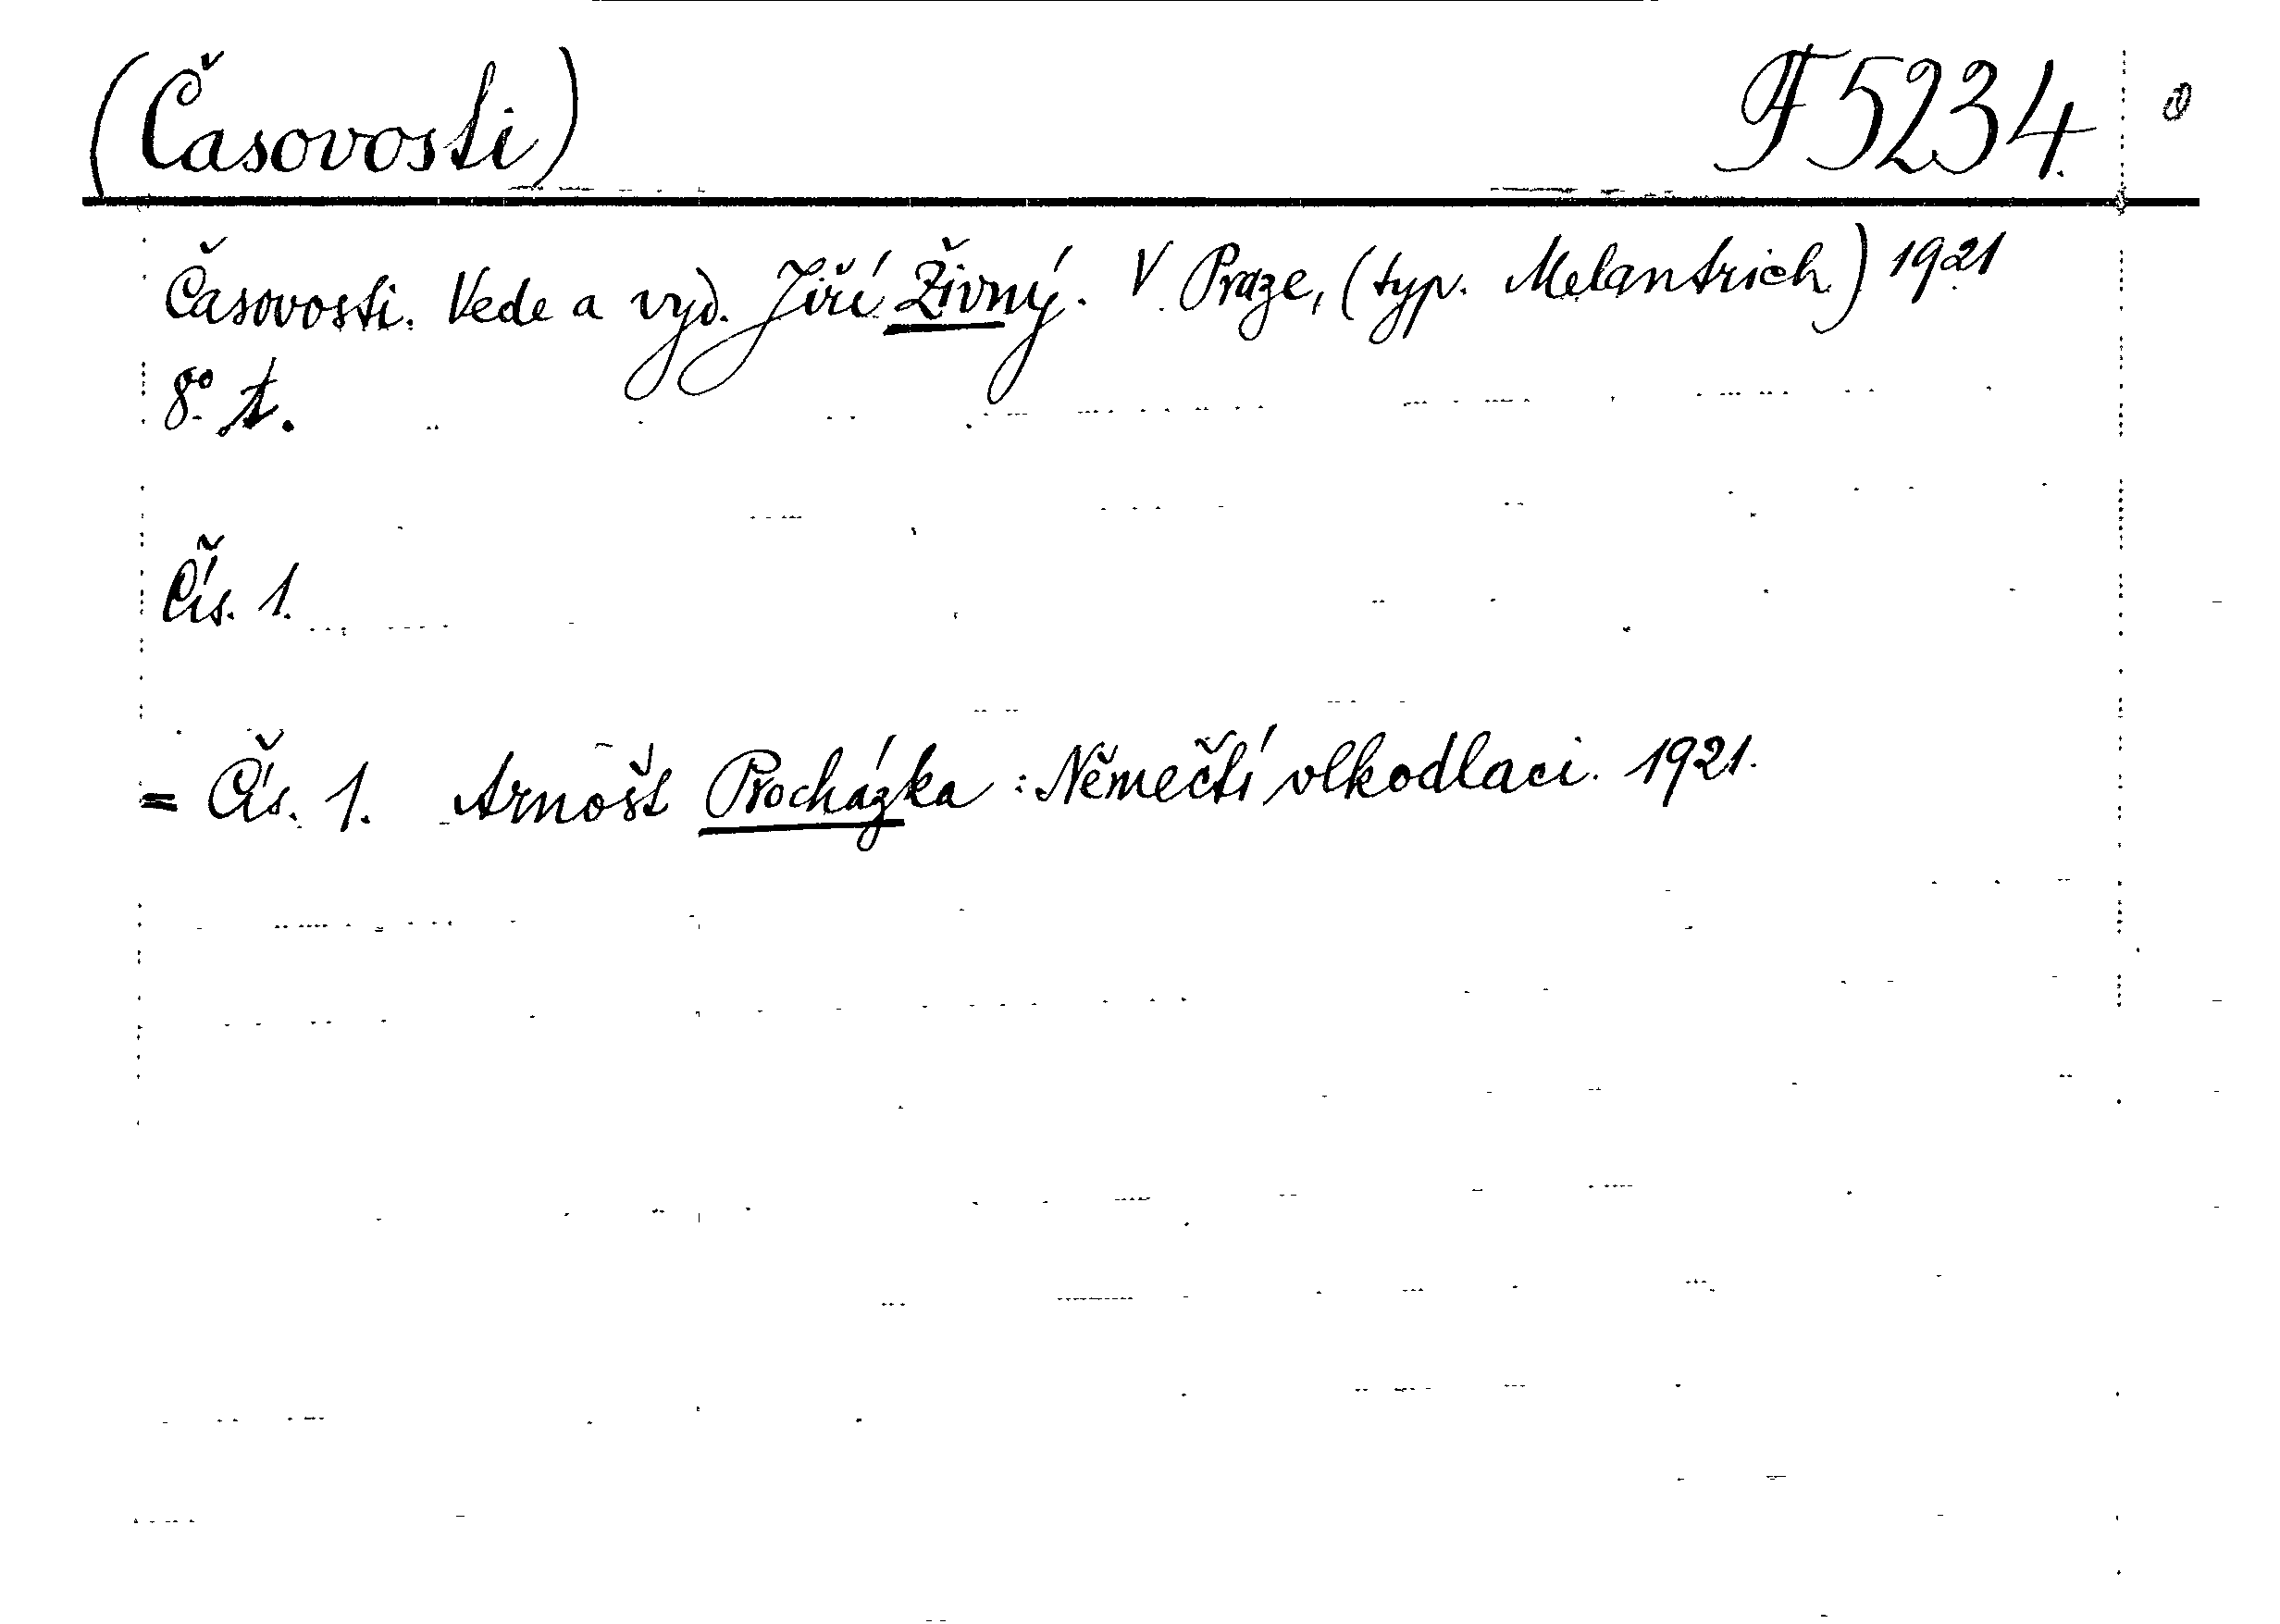 (Časovosti) F 5234.
Časovosti. Vede a vyd. Jiří Živný. V Praze, (typ. Melantrich) 1921
8°
Čís. 1.
= Čís. 1. Arnošt Procházka: Němečtí vlkodlaci. 1921.